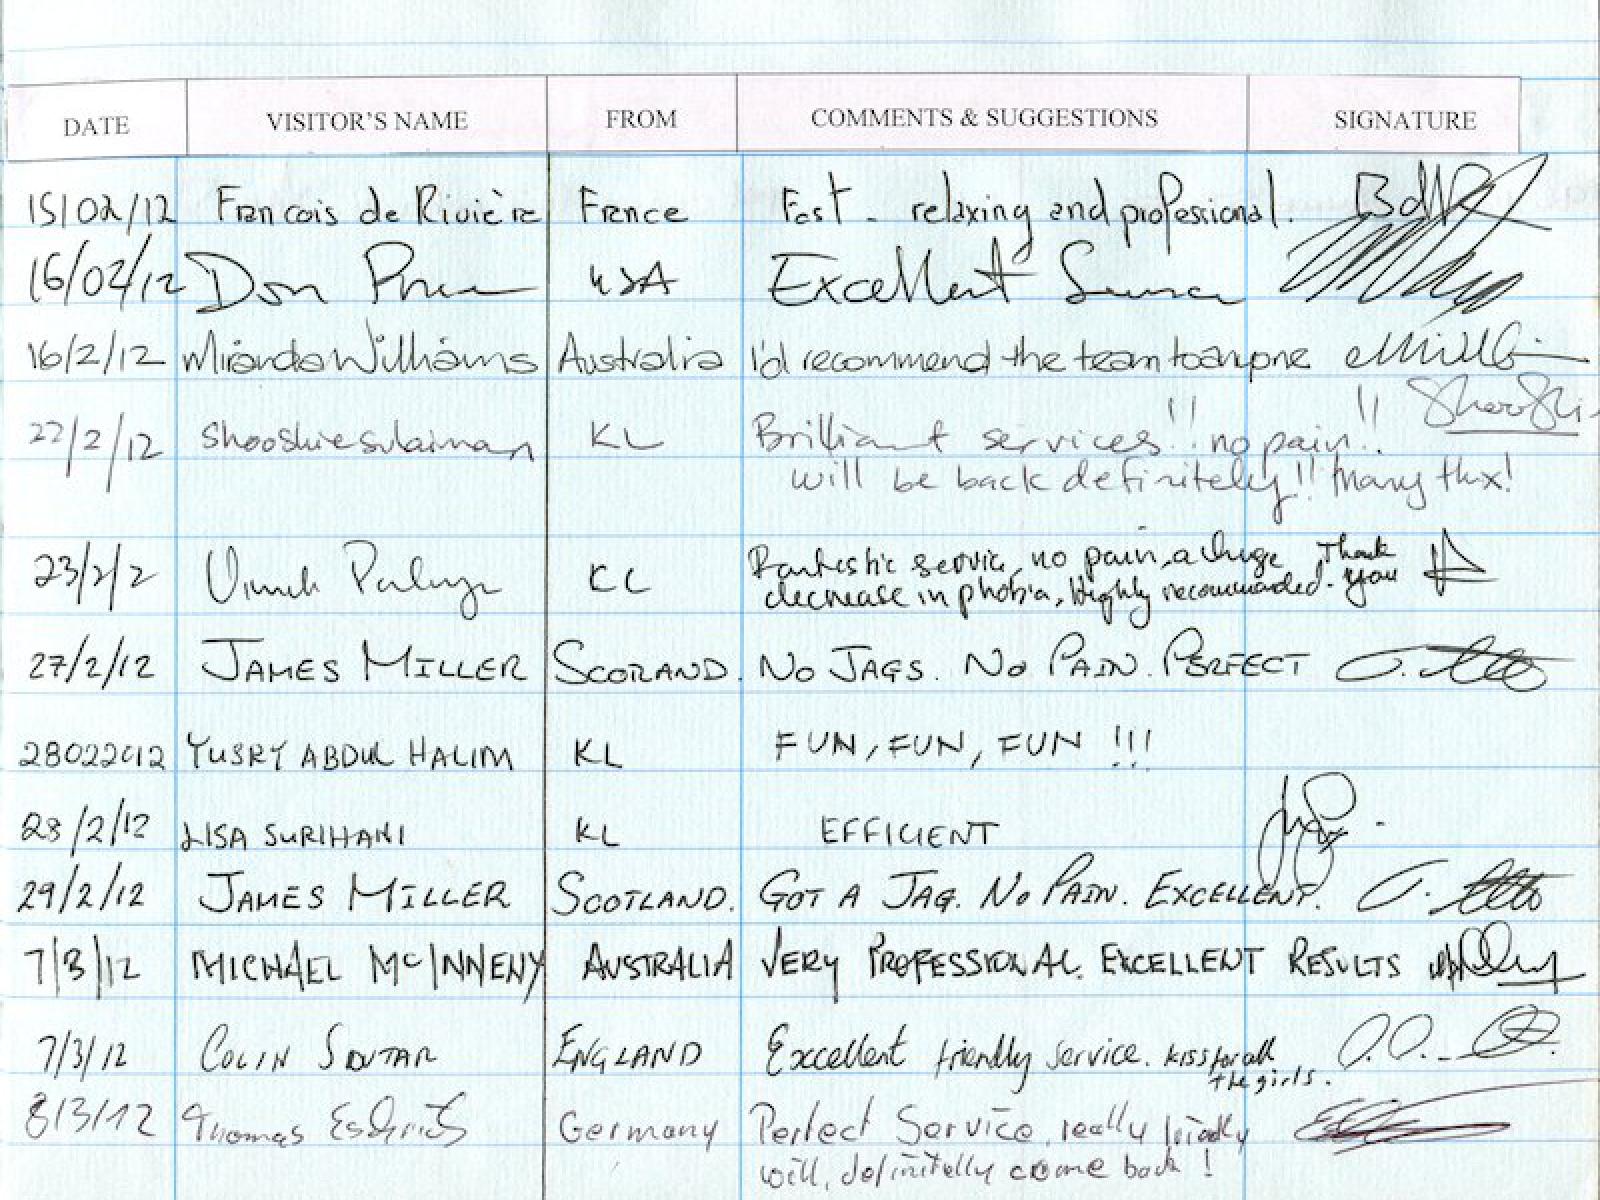 DATE VISITOR'S NAME FROM COMMENTS & SUGGESTIONS SIGNATURE
15/02/12 Francois de Rivière France Fast - relaxing and professional.
16/02/12 Don USA Excellent Service
16/2/12 Miranda Williams Australia I'd recommend the team to anyone
22/2/12 Shooshie Sulaiman KL Brilliant services!! no pain!!
will be back definitely!! Many thx!
23/2/2 KL Fantastic service, no pain, a huge Thank
decrease in phobia, Highly recommended. you
27/2/12 JAMES MILLER SCOTLAND. NO JAGS. NO PAIN. PERFECT
28022012 YUSRY ABDUL HALIM KL FUN, FUN, FUN !!!
28/2/12 LISA SURIHANI KL EFFICIENT
29/2/12 JAMES MILLER SCOTLAND. GOT A JAG. NO PAIN. EXCELLENT.
7/3/12 MICHAEL McINNENY AUSTRALIA VERY PROFESSIONAL. EXCELLENT RESULTS
7/3/12 COLIN SOUTAR ENGLAND Excellent friendly service. kiss for all
the girls.
8/3/12 Thomas Germany Perfect Service, really friendly
will, definitelly come back!